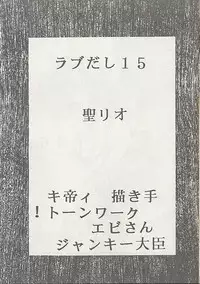 ラブだし１５
聖リオ
キ帝ィ　描き手
！トーンワーク
エビさん
ジャンキー大臣